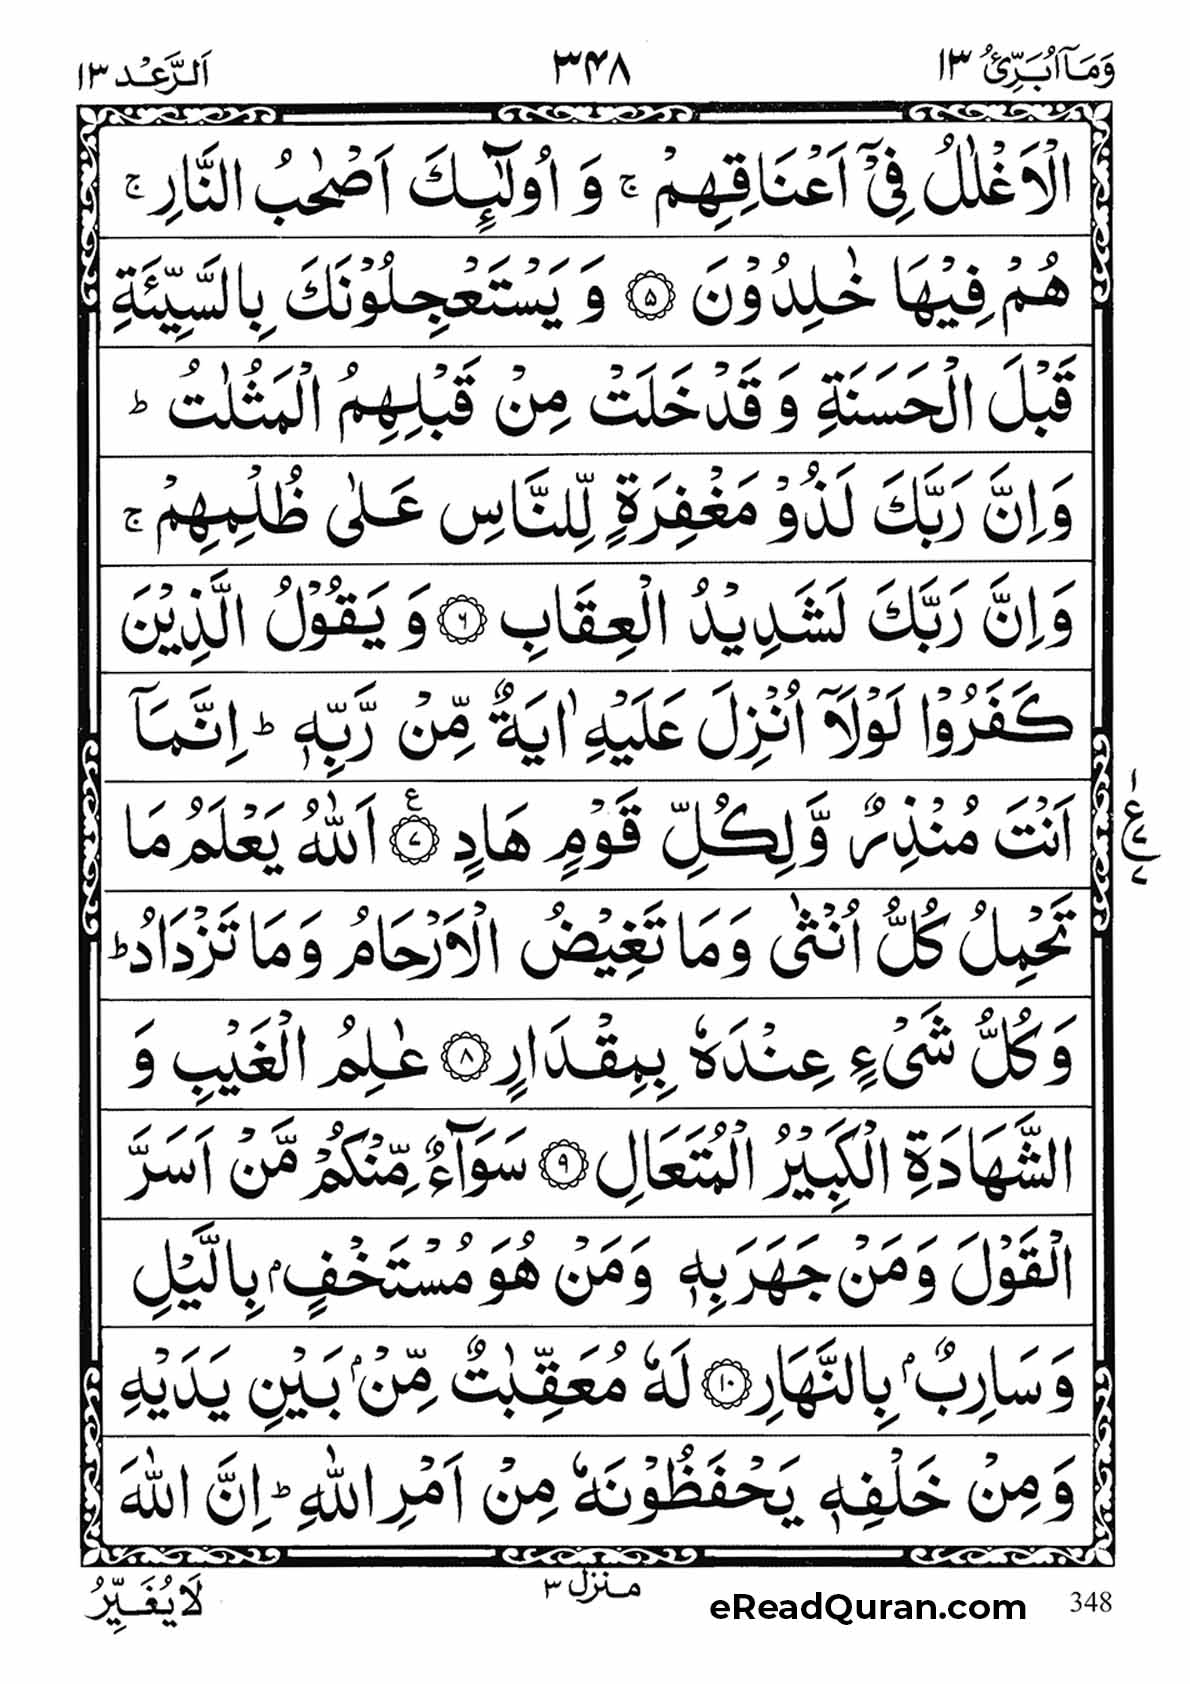 وَمَاۤ اُبَرِّئُ ١٣
٣٤٨
اَلرَّعْد ١٣
الْاَغْلٰلُ فِیْۤ اَعْنَاقِهِمْ ۚ وَ اُولٰٓئِكَ اَصْحٰبُ النَّارِ ۚ
هُمْ فِیْهَا خٰلِدُوْنَ ۵ وَ یَسْتَعْجِلُوْنَكَ بِالسَّیِّئَةِ
قَبْلَ الْحَسَنَةِ وَ قَدْ خَلَتْ مِنْ قَبْلِهِمُ الْمَثُلٰتُ ؕ
وَ اِنَّ رَبَّكَ لَذُوْ مَغْفِرَةٍ لِّلنَّاسِ عَلٰی ظُلْمِهِمْ ۚ
وَ اِنَّ رَبَّكَ لَشَدِیْدُ الْعِقَابِ ۶ وَ یَقُوْلُ الَّذِیْنَ
كَفَرُوْا لَوْلَاۤ اُنْزِلَ عَلَیْهِ اٰیَةٌ مِّنْ رَّبِّهٖ ؕ اِنَّمَاۤ
اَنْتَ مُنْذِرٌ وَّ لِكُلِّ قَوْمٍ هَادٍ ۷ ع اَللّٰهُ یَعْلَمُ مَا
١
ع
٧
٧
تَحْمِلُ كُلُّ اُنْثٰی وَ مَا تَغِیْضُ الْاَرْحَامُ وَ مَا تَزْدَادُ ؕ
وَ كُلُّ شَیْءٍ عِنْدَهٗ بِمِقْدَارٍ ۸ عٰلِمُ الْغَیْبِ وَ
الشَّهَادَةِ الْكَبِیْرُ الْمُتَعَالِ ۹ سَوَآءٌ مِّنْكُمْ مَّنْ اَسَرَّ
الْقَوْلَ وَ مَنْ جَهَرَ بِهٖ وَ مَنْ هُوَ مُسْتَخْفٍۭ بِالَّیْلِ
وَ سَارِبٌۢ بِالنَّهَارِ ۱۰ لَهٗ مُعَقِّبٰتٌ مِّنْۢ بَیْنِ یَدَیْهِ
وَ مِنْ خَلْفِهٖ یَحْفَظُوْنَهٗ مِنْ اَمْرِ اللّٰهِ ؕ اِنَّ اللّٰهَ
منزل ٣
لَا یُغَیِّرُ
eReadQuran.com
348